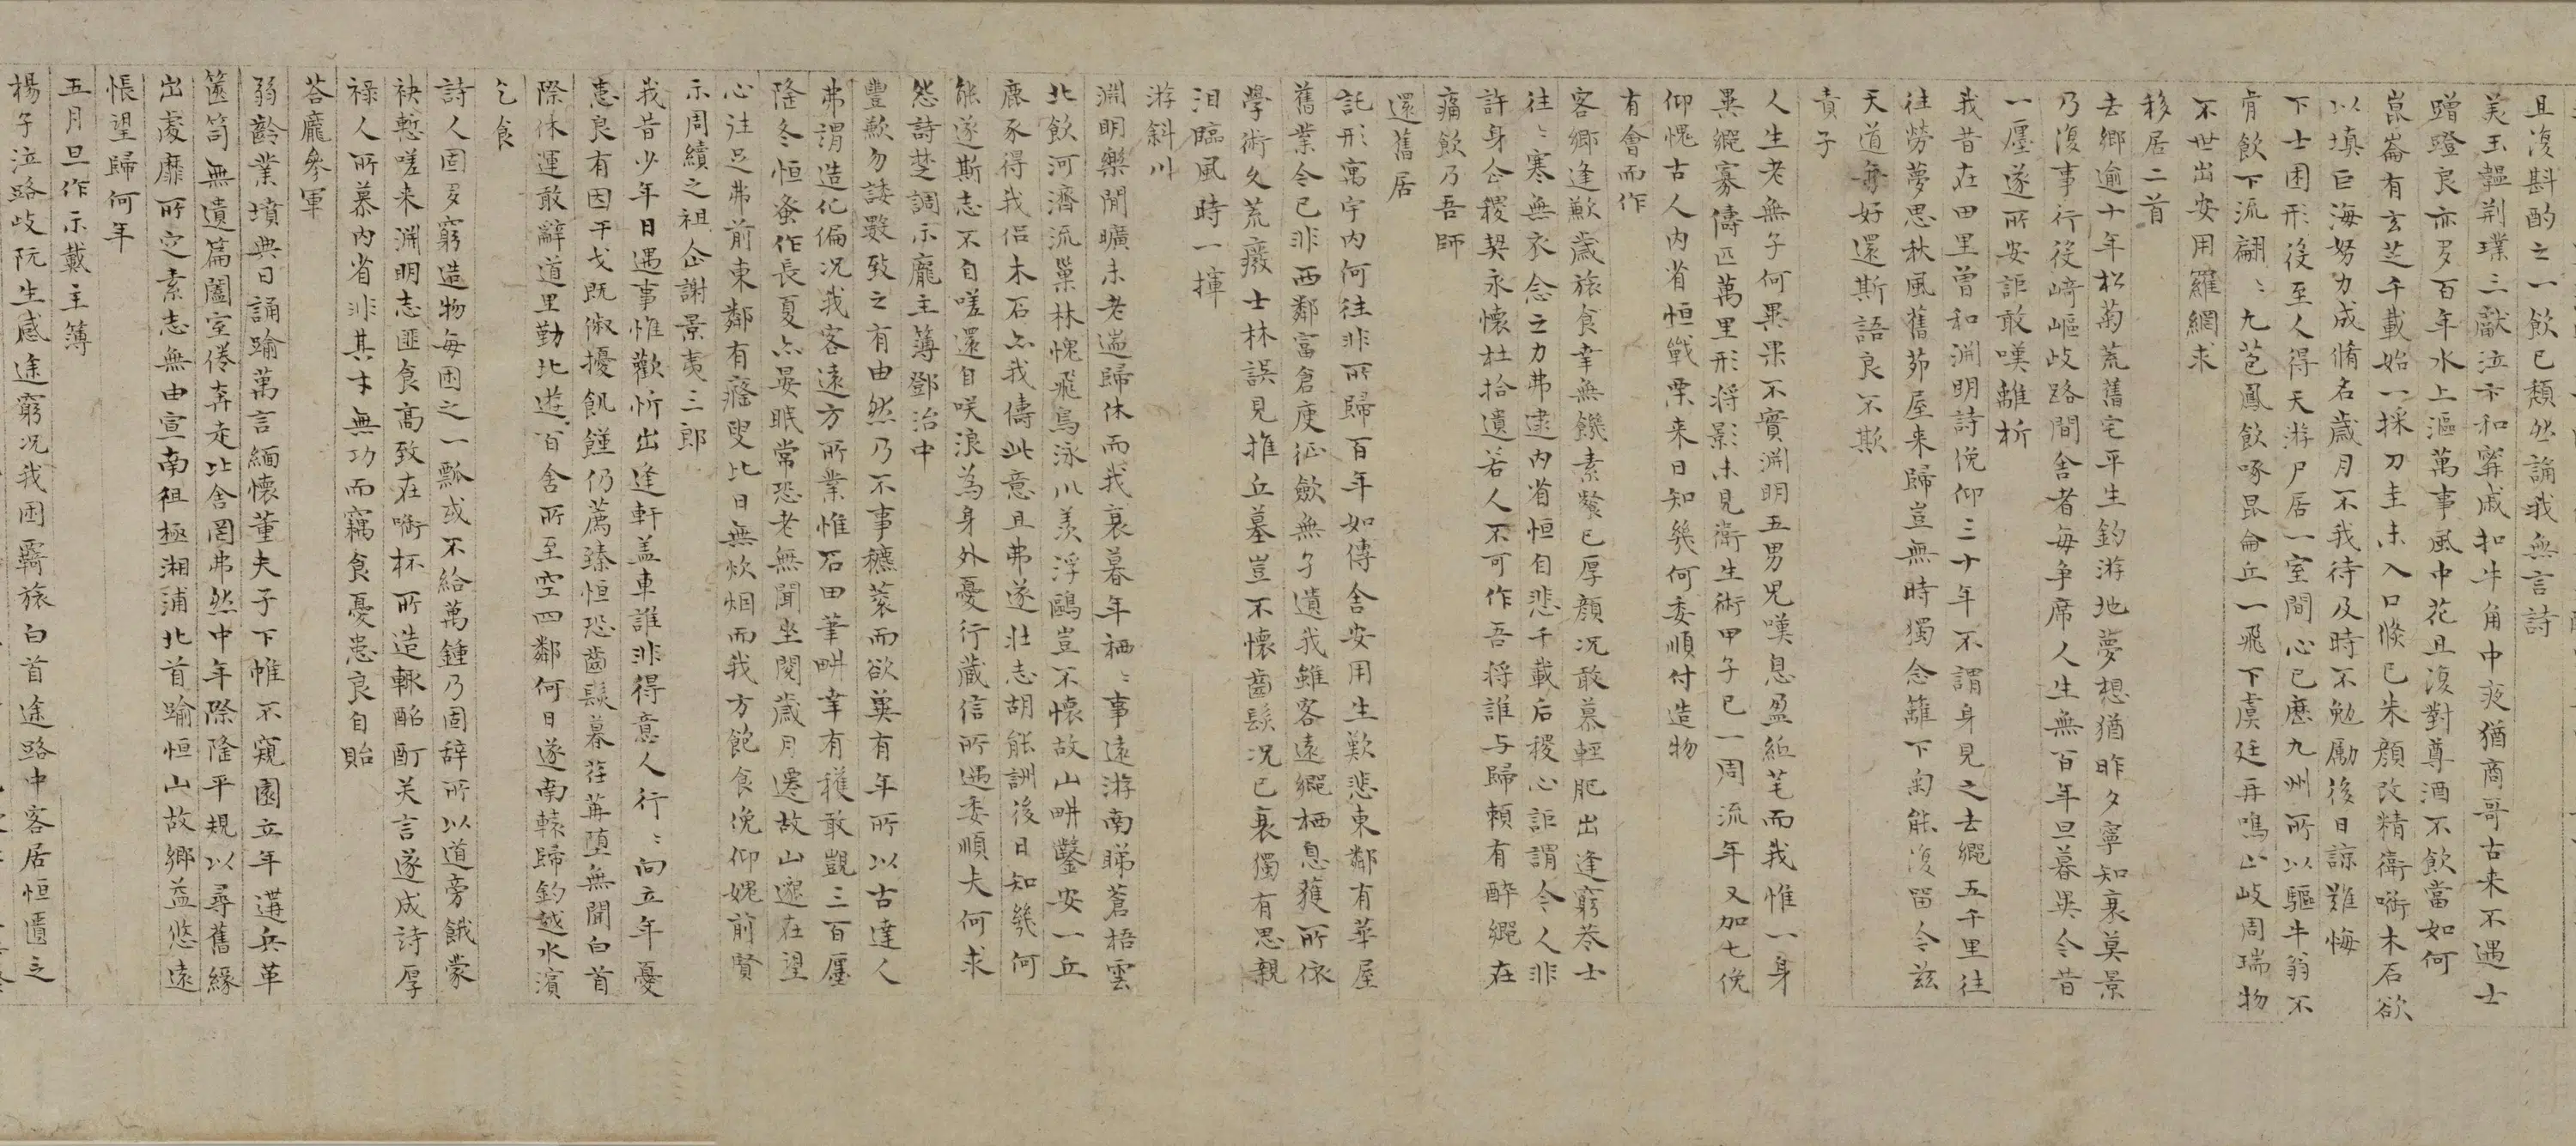 且復斟酌之一飲已頹然誦我無言詩
美玉韞荆璞三獻泣卞和甯戚扣牛角中夜猶商哥古来不遇士
蹭蹬良亦多百年水上漚萬事風中花且復對尊酒不飲當如何
崑崙有玄芝千載始一採刀圭未入口倐已朱顔改精衛啣木石欲
以填巨海努力成脩名歲月不我待及時不勉勵後日諒難悔
下士困形役至人得天游尸居一室間心已歷九州所以驅牛翁不
肯飲下流翩〻九苞鳳飲啄昆侖丘一飛下虞廷再鳴出岐周瑞物
不世出安用羅網求
移居二首
去鄉逾十年松菊荒舊宅平生釣游地夢想猶昨夕寧知衰莫景
乃復事行役崎嶇歧路間舍者每争席人生無百年旦暮異今昔
一廛遂所安詎敢嘆離析
我昔在田里曾和淵明詩俛仰三十年不謂身見之去鄉五千里往
往勞夢思秋風舊茆屋来歸豈無時獨念籬下菊能復留今茲
天道每好還斯語良不欺
責子
人生老無子何異果不實淵明五男児嘆息盈紙笔而我惟一身
異鄉寡儔匹萬里形将影未見衛生術甲子已一周流年又加七俛
仰愧古人内省恒戰栗来日知幾何委順付造物
有會而作
客鄉逢歉歲旅食幸無饑素餐已厚顔况敢慕輕肥出逢窮苶士
往〻寒無衣念之力弗逮内省恒自悲千載后稷心詎謂今人非
許身企稷契永懷杜拾遺若人不可作吾将誰与歸頼有醉鄉在
痛飲乃吾師
還舊居
託形寓宇内何往非所歸百年如傳舍安用生歎悲東鄰有華屋
舊業今已非西鄰富倉庾征斂無孑遺我雖客遠鄉栖息獲所依
學術久荒癈士林誤見推丘墓豈不懷齒髮况已衰獨有思親
泪臨風時一揮
游斜川
淵明樂閒曠未老遄歸休而我衰暮年栖〻事遠游南睇蒼梧雲
北飲河濟流巢林愧飛鳥泳川羡浮鷗豈不懷故山畊鑿安一丘
鹿豕得我侣木石亦我儔此意且弗遂壮志胡能訓後日知幾何
能遂斯志不自嗟還自咲浪為身外憂行藏信所遇委順夫何求
怨詩楚調示龐主薄鄧治中
豐歉勿諉數致之有由然乃不事穮蔉而欲兾有年所以古達人
弗謂造化偏况我客遠方所業惟石田筆畊幸有穫敢覬三百廛
隆冬恒夙作長夏亦晏眠常恐老無聞坐閱歲月遷故山邈在望
心注足弗前東鄰有癃叟比日無炊烟而我方飽食俛仰媿前賢
示周續之祖企謝景夷三郎
我昔少年日遇事惟歡忻出逢軒盖車誰非得意人行〻向立年憂
患良有因干戈既俶擾飢饉仍薦臻恒恐齒髮暮荏苒堕無聞白首
際休運敢辭道里勤北遊百舍所至空四鄰何日遂南轅歸釣越水濱
乞食
詩人固多窮造物每困之一瓢或不給萬鍾乃固辞所以道旁餓蒙
袂慙嗟来淵明志匪食高致在啣杯所造輒酩酊笑言遂成詩厚
祿人所慕内省非其才無功而竊食憂患良自貽
荅龐參軍
弱齡業墳典日誦踰萬言緬懷董夫子下帷不窺園立年遘兵革
篋笥無遺篇闔室倦奔走比舍罔弗然中年際隆平規以尋舊緣
出處靡所定素志無由宣南徂極湘浦北首踰恒山故鄉益悠遠
悵望歸何年
五月旦作示戴主簿
楊子泣路岐阮生感途窮况我困羇旅白首途路中客居恒匱乏